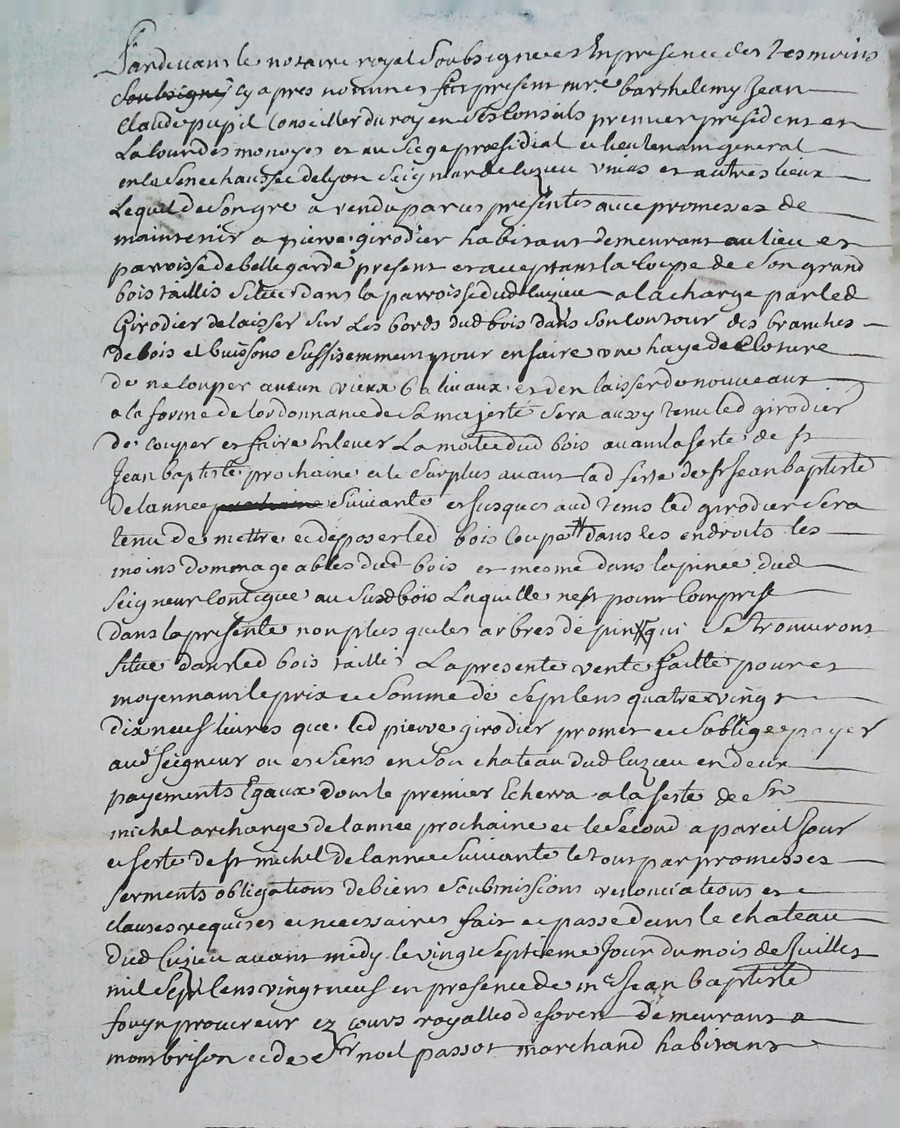 Pardevant le notaire royal soubsigne et en presence des tesmoins
soubsigné cy apres nommes fut present mre barthelemy jean
claude pupil conseiller du roy en ses conseils premier president en
la cour des monoyes et au siege præsidial et lieutenant general
en la senechaussée de lyon seigneur de luzieu vinas et autres lieux
lequel de son gré a vendu par ces presentes avec promesses de
maintenir a pierre girodier habitant demeurant au lieu et
parroisse de bellegarde present et acceptant la coupe de son grand
bois taillis situé dans la parroisse dud luzieu a la charge par led
girodier de laisser sur les bords dud bois dans son contour des branches
de bois et buissons suffisemment pour en faire une haye de cloture
de ne couper aucun vieux balivaux et den laisser de nouveaux
a la forme de lordonnance de sa majesté sera aussy tenu led girodier
de couper et faire enlever la moitie dud bois avant la feste de st
jean baptiste prochaine et le surplus avant lad feste de st jean baptiste
de lannee prochaine suivante et jusques aud tems led girodier sera
tenu de mettre et deposer led bois coupé dans les endroits les
moins dommageables dud bois et mesme dans la pinée dud
seigneur contigue au susd bois laquelle nest point comprise
dans la presente non plus que les arbres de pin qui se trouveront
situé dans led bois taillis la presente vente faitte pour et
moyennant le prix et somme de sept cens quatre vingt
dix neuf livres que led pierre girodier promet et soblige payer
aud seigneur ou es siens en son chateau dud luzieu en deux
payements egaux dont le premier echerra a la feste de st
michel archange de lannee prochaine et le second a pareil jour
et feste de st michel de lannee suivante le tout par promesses
serments obligations de biens soubmissions renonciations et
clauses requises et necessaires fait et passé dans le chateau
dud luzieu avant midy le vingt septieme jour du mois de juillet
mil sept cens vingt neuf en presence de me jean baptiste
fouyn procureur ez cours royalles de forest demeurant a
montbrison et de sr noel passot marchand habitant